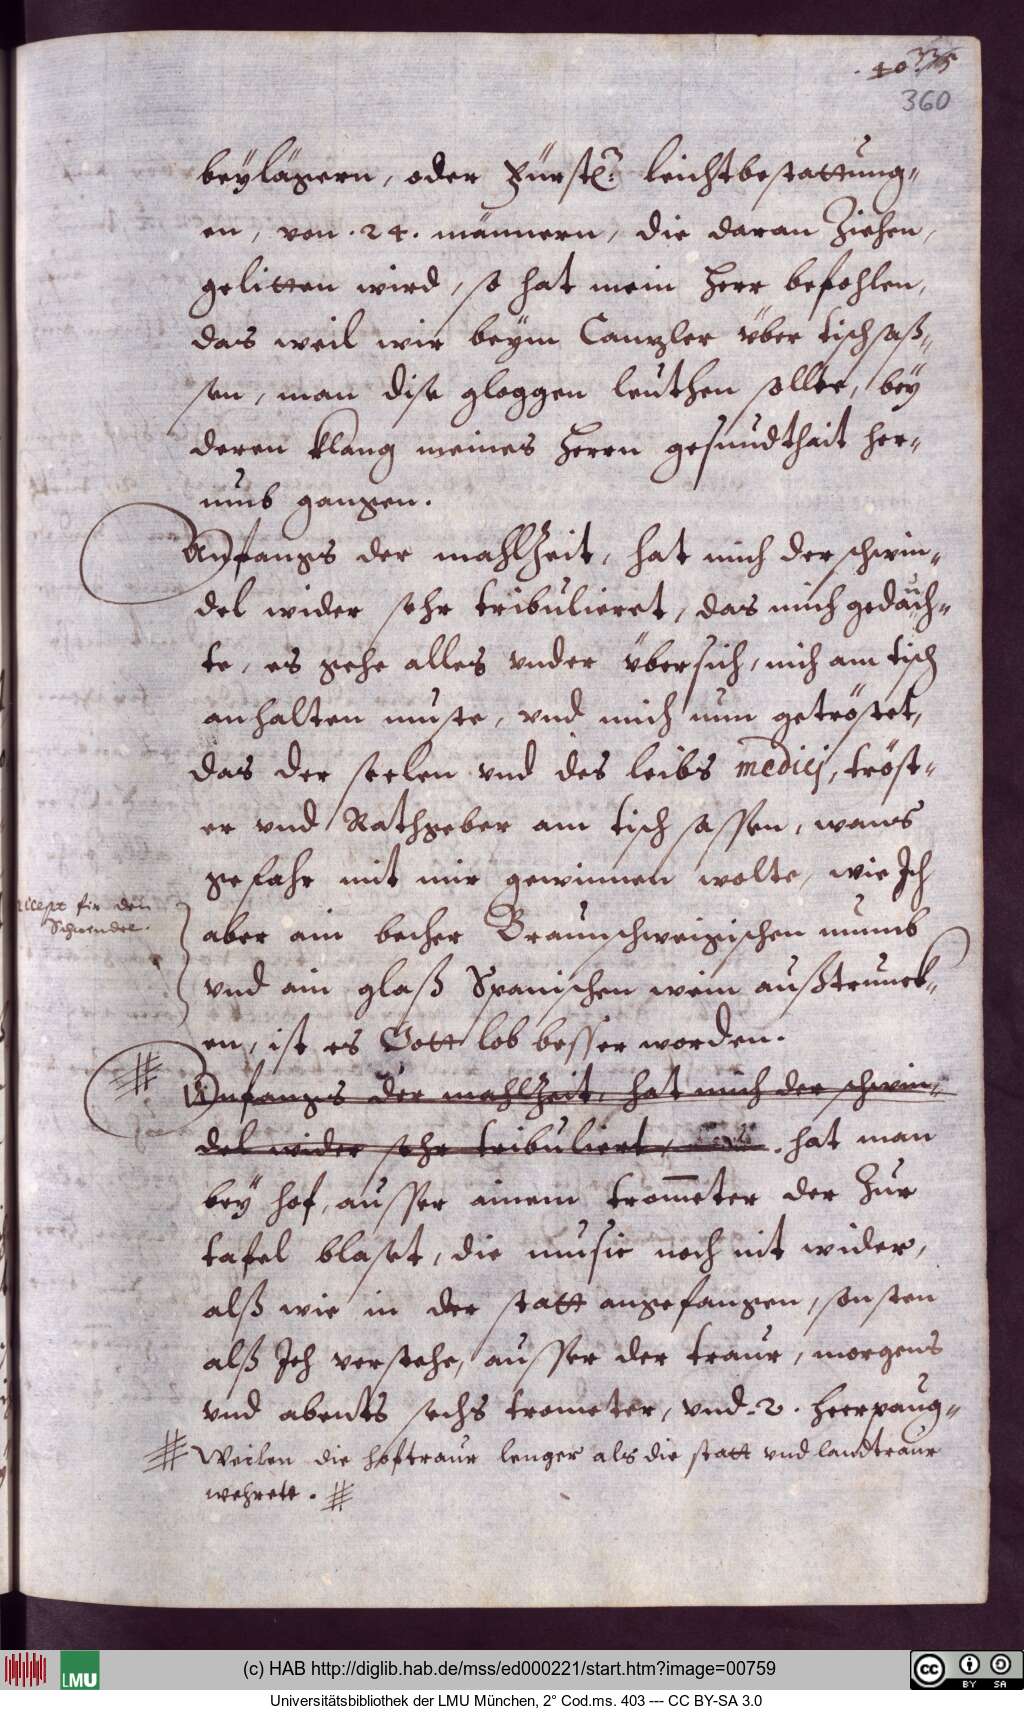 40 335
360
beÿlägern, oder Fürstl: leichtbestattung=
en, von .24. männern, die daran Ziehen,
gelitten wird, so hat mein Herr befohlen,
das weil wir beÿm Canzler über tisch saß=
sen, man dise gloggen leuthen sollte, beÿ
deren klang meines Herrn gesundthait her=
umb gangen.
Anfangs der mahlZeit, hat mich der schwin=
del wider sehr tribulieret, das mich gedäuch=
te, es gehe alles under übersich, mich am tisch
anhalten muste, und mich nun getröstet,
das der seelen und des leibs medicj, tröst=
er und Rathgeber am tisch sassen, wans
gefahr mit mir gewinnen wolte, wie Ich
ricept für den
Schwendel.
aber ain becher Braunschweigischen mumb
und ain glaß Spanischen wein außtrunck=
en, ist es Gott lob besser worden.
# Anfangs der mahlZeit, hat mich der schwin=
del wider sehr tribuliert, hat man
beÿ hof, ausser ainem trom̄eter der Zur
tafel blaset, die music noch nit wider,
alß wie in der statt angefangen, sonsten
alß Ich verstehe, ausser der traur, morgens
und abents sechs trometer, und .2. Heerpaug=
# Weilen die hoftraur lenger als die statt und landtraur
wehrett. #
(c) HAB http://diglib.hab.de/mss/ed000221/start.htm?image=00759
LMU
cc BY SA
Universitätsbibliothek der LMU München, 2° Cod.ms. 403 --- CC BY-SA 3.0